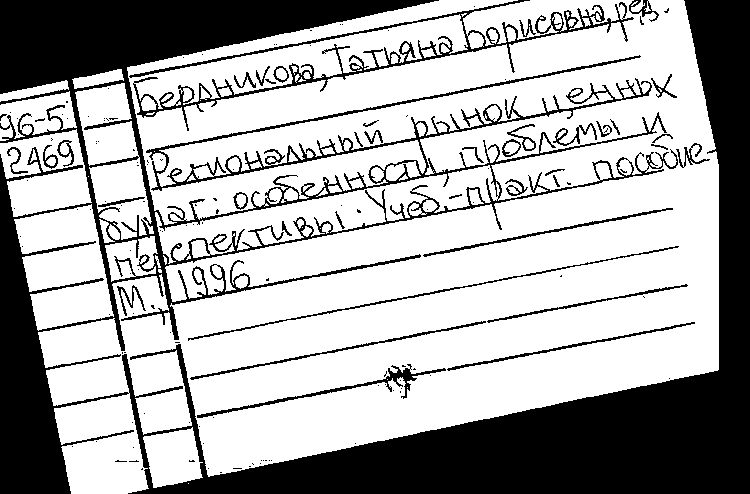 Бердникова, Татьяна Борисовна, ред.
96-5
2469
Региональный рынок ценных
бумаг: особенности, проблемы и
перспективы: Учеб.-практ. пособие-
М., 1996.